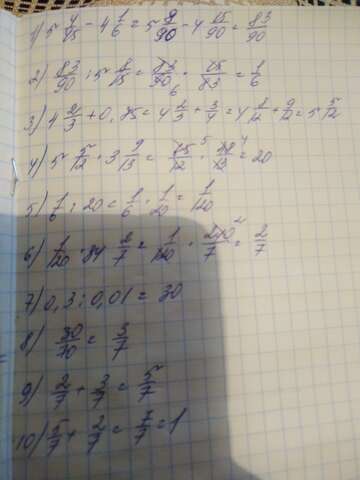 1) 5 4/45 - 4 1/6 = 5 8/90 - 4 15/90 = 83/90
2) 83/90 : 5 8/15 = 83/90 6 · 15/83 = 1/6
3) 4 2/3 + 0,75 = 4 2/3 + 3/4 = 4 8/12 + 9/12 = 5 5/12
4) 5 5/12 · 3 9/13 = 65/12 5 · 48/13 4 = 20
5) 1/6 : 20 = 1/6 · 1/20 = 1/120
6) 1/120 · 34 2/7 = 1/120 · 240/7 2 = 2/7
7) 0,3 : 0,01 = 30
8) 30/70 = 3/7
9) 2/7 + 3/7 = 5/7
10) 5/7 + 2/7 = 7/7 = 1